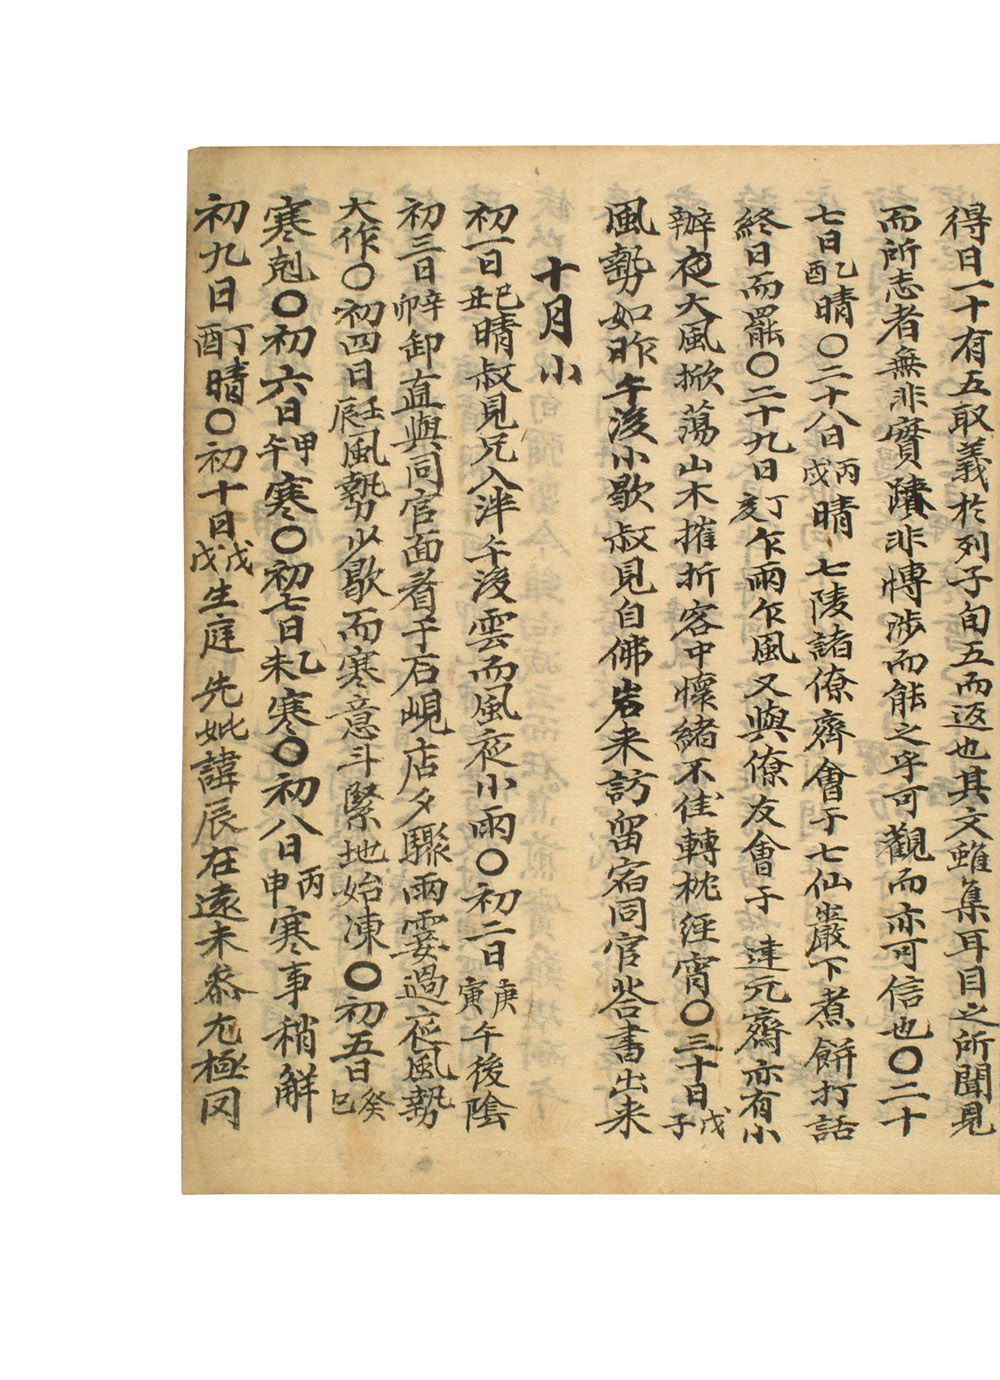 得日一十有五取義於列子旬五而返也其文雖集耳目之所聞見
而所志者無非實蹟非博涉而能之乎可觀而亦可信也〇二十
七日乙酉晴〇二十八日丙戌晴七陵諸僚齊會于七仙巖下煮餅打話
終日而罷〇二十九日丁亥乍雨乍風又與僚友會于達元齋亦有小
辦夜大風掀蕩山木摧折客中懷緒不佳轉枕經宵〇三十日戊子
風勢如昨午後小歇叔見自佛岩来訪留宿同官答書出来
十月小
初一日己丑晴叔見兄入泮午後雲而風夜小雨〇初二日庚寅午後陰
初三日辛卯卸直與同官面看于石峴店夕驟雨霎過夜風勢
大作〇初四日壬辰風勢少歇而寒意斗緊地始凍〇初五日癸巳
寒剋〇初六日甲午寒〇初七日乙未寒〇初八日丙申寒事稍解
初九日丁酉晴〇初十日戊戌生庭先妣諱辰在遠未叅尤極罔